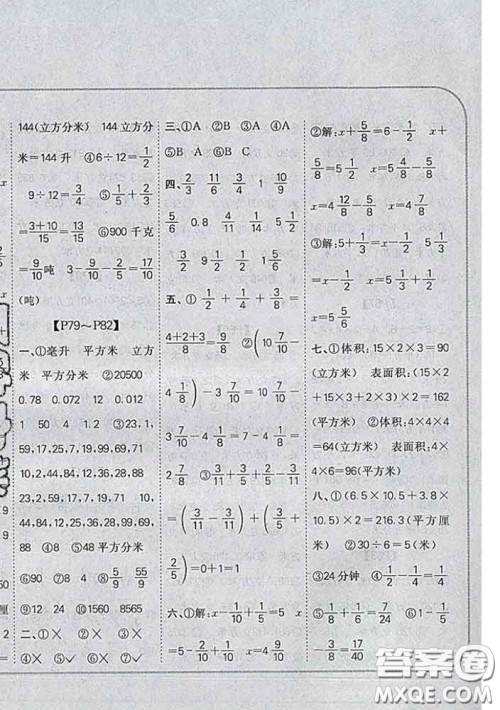 144(立方分米) 144 立方分
米=144 升 ④6÷12=1/2
9÷12=3/4 ⑤1/5+2/3
=(3+10)/15=13/15 ⑥900 千克
=9/10吨 3-9/10=2 1/10
(吨)
【P79～P82】
一、①毫升 平方米 立方
米 平方分米 ②20500
0.78 0.012 1200 1.2
1 50 4 1.2 ③23,1,
59,17,25,7,19,69,71
10,44,84,12,24,32,48,
88 23,2,59,17,7,19,71
10,44,84,12,25,24,69,
88 ④8 ⑤48 平方分米
⑥90 ⑦8 ⑧5/9 55/9
⑨12 24 ⑩1560 8565
二、①× ②× ③×
④× ⑤× ⑥× ⑦√
三、①A ②A ③A ④A
⑤B A ⑥B C
四、2/3 11/6 3/4 1 10/9
5/6 0.8 4/11 1/14 5 1/2
9 3/4 1/2
五、①1/2+1/4+3/8=
(4+2+3)/8=9/8 ②(10 7/10-
4 1/8)-3 7/10=10 7/10-
3 7/10-4 1/8=7-4 1/8=
2 7/8 ③3/11+3/5-3/11+2/5
=(3/11-3/11)+(3/5+
2/5)=0+1=1
六、①解:x+1/10+1/10=5 x
=5-2/10 x=4 9/10
②解:x+5/8=6-1/2 x+
5/8=5 1/2 x=5 1/2-
5/8 x=4 7/8
③解:5+1/3=x-1/2
x-1/2=5 1/3 x=5 1/3+
1/2 x=5 5/6
七、①体积:15×2×3=90
(立方米) 表面积:(15×
2+15×3+2×3)×2=162
(平方米) ②体积:4×4×
4=64(立方米) 表面积:4
×4×6=96(平方米)
八、①(6.5×10.5+3.8×
10.5)×2=216.3(平方厘
米) ②30÷6=5(米)
③24 分钟 ④1/4-1/6=1/12
⑤1/6+1/8=7/24 ⑥1-1/5
-3/8=17/40
答案圈
MXQE.COM